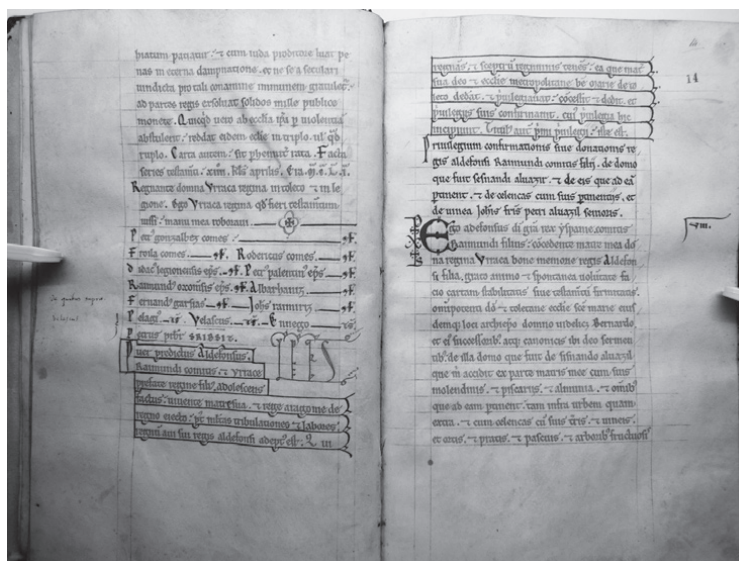 hiatum pariatur. ⁊ cum iuda proditore luat pe
nas in eterna dampnatione. et ne se a seculari
uindicta pro tali conamine immunem
ad partes regis exsoluat solidos mille publico
monete. Quicqd uero ab ecclia ipsa p uiolentia
abstulerit. reddat eidem ecclie in triplo. ul qd
triplo. Carta autem sit rata. Facta
series testam. xiiii. klds aprilis. Era. mclа.
Regnante domna Vrraca regina in toleto ⁊ in le
gione. Ego Vrraca regina qd fieri testamtum
iussi manu mea roborаui
Petr gonzalbez comes. cf.
Froila comes cf. Rodericus comes cf.
d abac legionensis eps. cf. Petr palentin eps cf.
Raimund oxomsis eps. cf. Albarhanis cf.
Fernand garsias cf. Johs ramiriz cf.
Pelagi ts. Velascus ts. Ennego ts.
Petrus prbr SRIBSIT.
Puer predictus Aldefonsus.
Raimundi comitis ⁊ Vrrace
prefate regine filius. adolescens
factus. uiuente matre sua. ⁊ rege aragonie de
regno eiecto. pt mltas tribulationes ⁊ labores.
regnum aui sui regis aldefonsi adept est. Q in
14
regnans. ⁊ sceptrum regiminis tenens. ea que mat
sua deo ⁊ ecclie metropolitane be marie de to
leto dedat. ⁊ priuilegiauat. cocessit ⁊ dedit. et
priuilegiis suis confirmauit. qui priuilegia hic
incipiunt. Titul aut pmi priuilegii iste est.
Priuilegium confirmationis siue donationis re
gis aldefonsi Raimundi comitis filii. de domo
que fuit fifnandi aluazil. ⁊ de eis que ad ea
ptinent. ⁊ de celencas cum suis ptinentiis. et
de uinea Johis fris petri aluazil
Ego adefonsus di gra rex yspanie. comitis
Raimundi filius. cocedente matre mea do
na regina Vrraca bone memorie regis Aldefon
si filia. grato animo ⁊ spontanea uoluntate fa
cio cartam stabilitatis siue testamti firmitatis.
omnipotenti do ⁊ toletane ecclie sce marie eius
demq loci archiepo domino Bernardo.
et ei successorib. atq canonicis ibi deo seruien
tib. de illa domo que fuit de fifnando aluazil
que m accidit ex parte matris mee cum suis
molendinis. ⁊ piscariis. ⁊ almunia. ⁊ omib
que ad eam ptinent. tam infra urbem quam
extra. ⁊ cum celencas cu suis tris. ⁊ uineis.
et ortis. ⁊ pratis. ⁊ pascuis. ⁊ arborib fructuosi